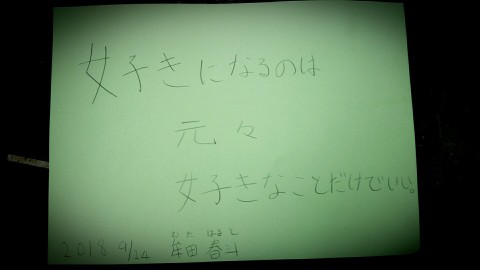 女子きになるのは
元々
女子きなことだけでいい。
むた はると
2018 9/24 牟田 春斗